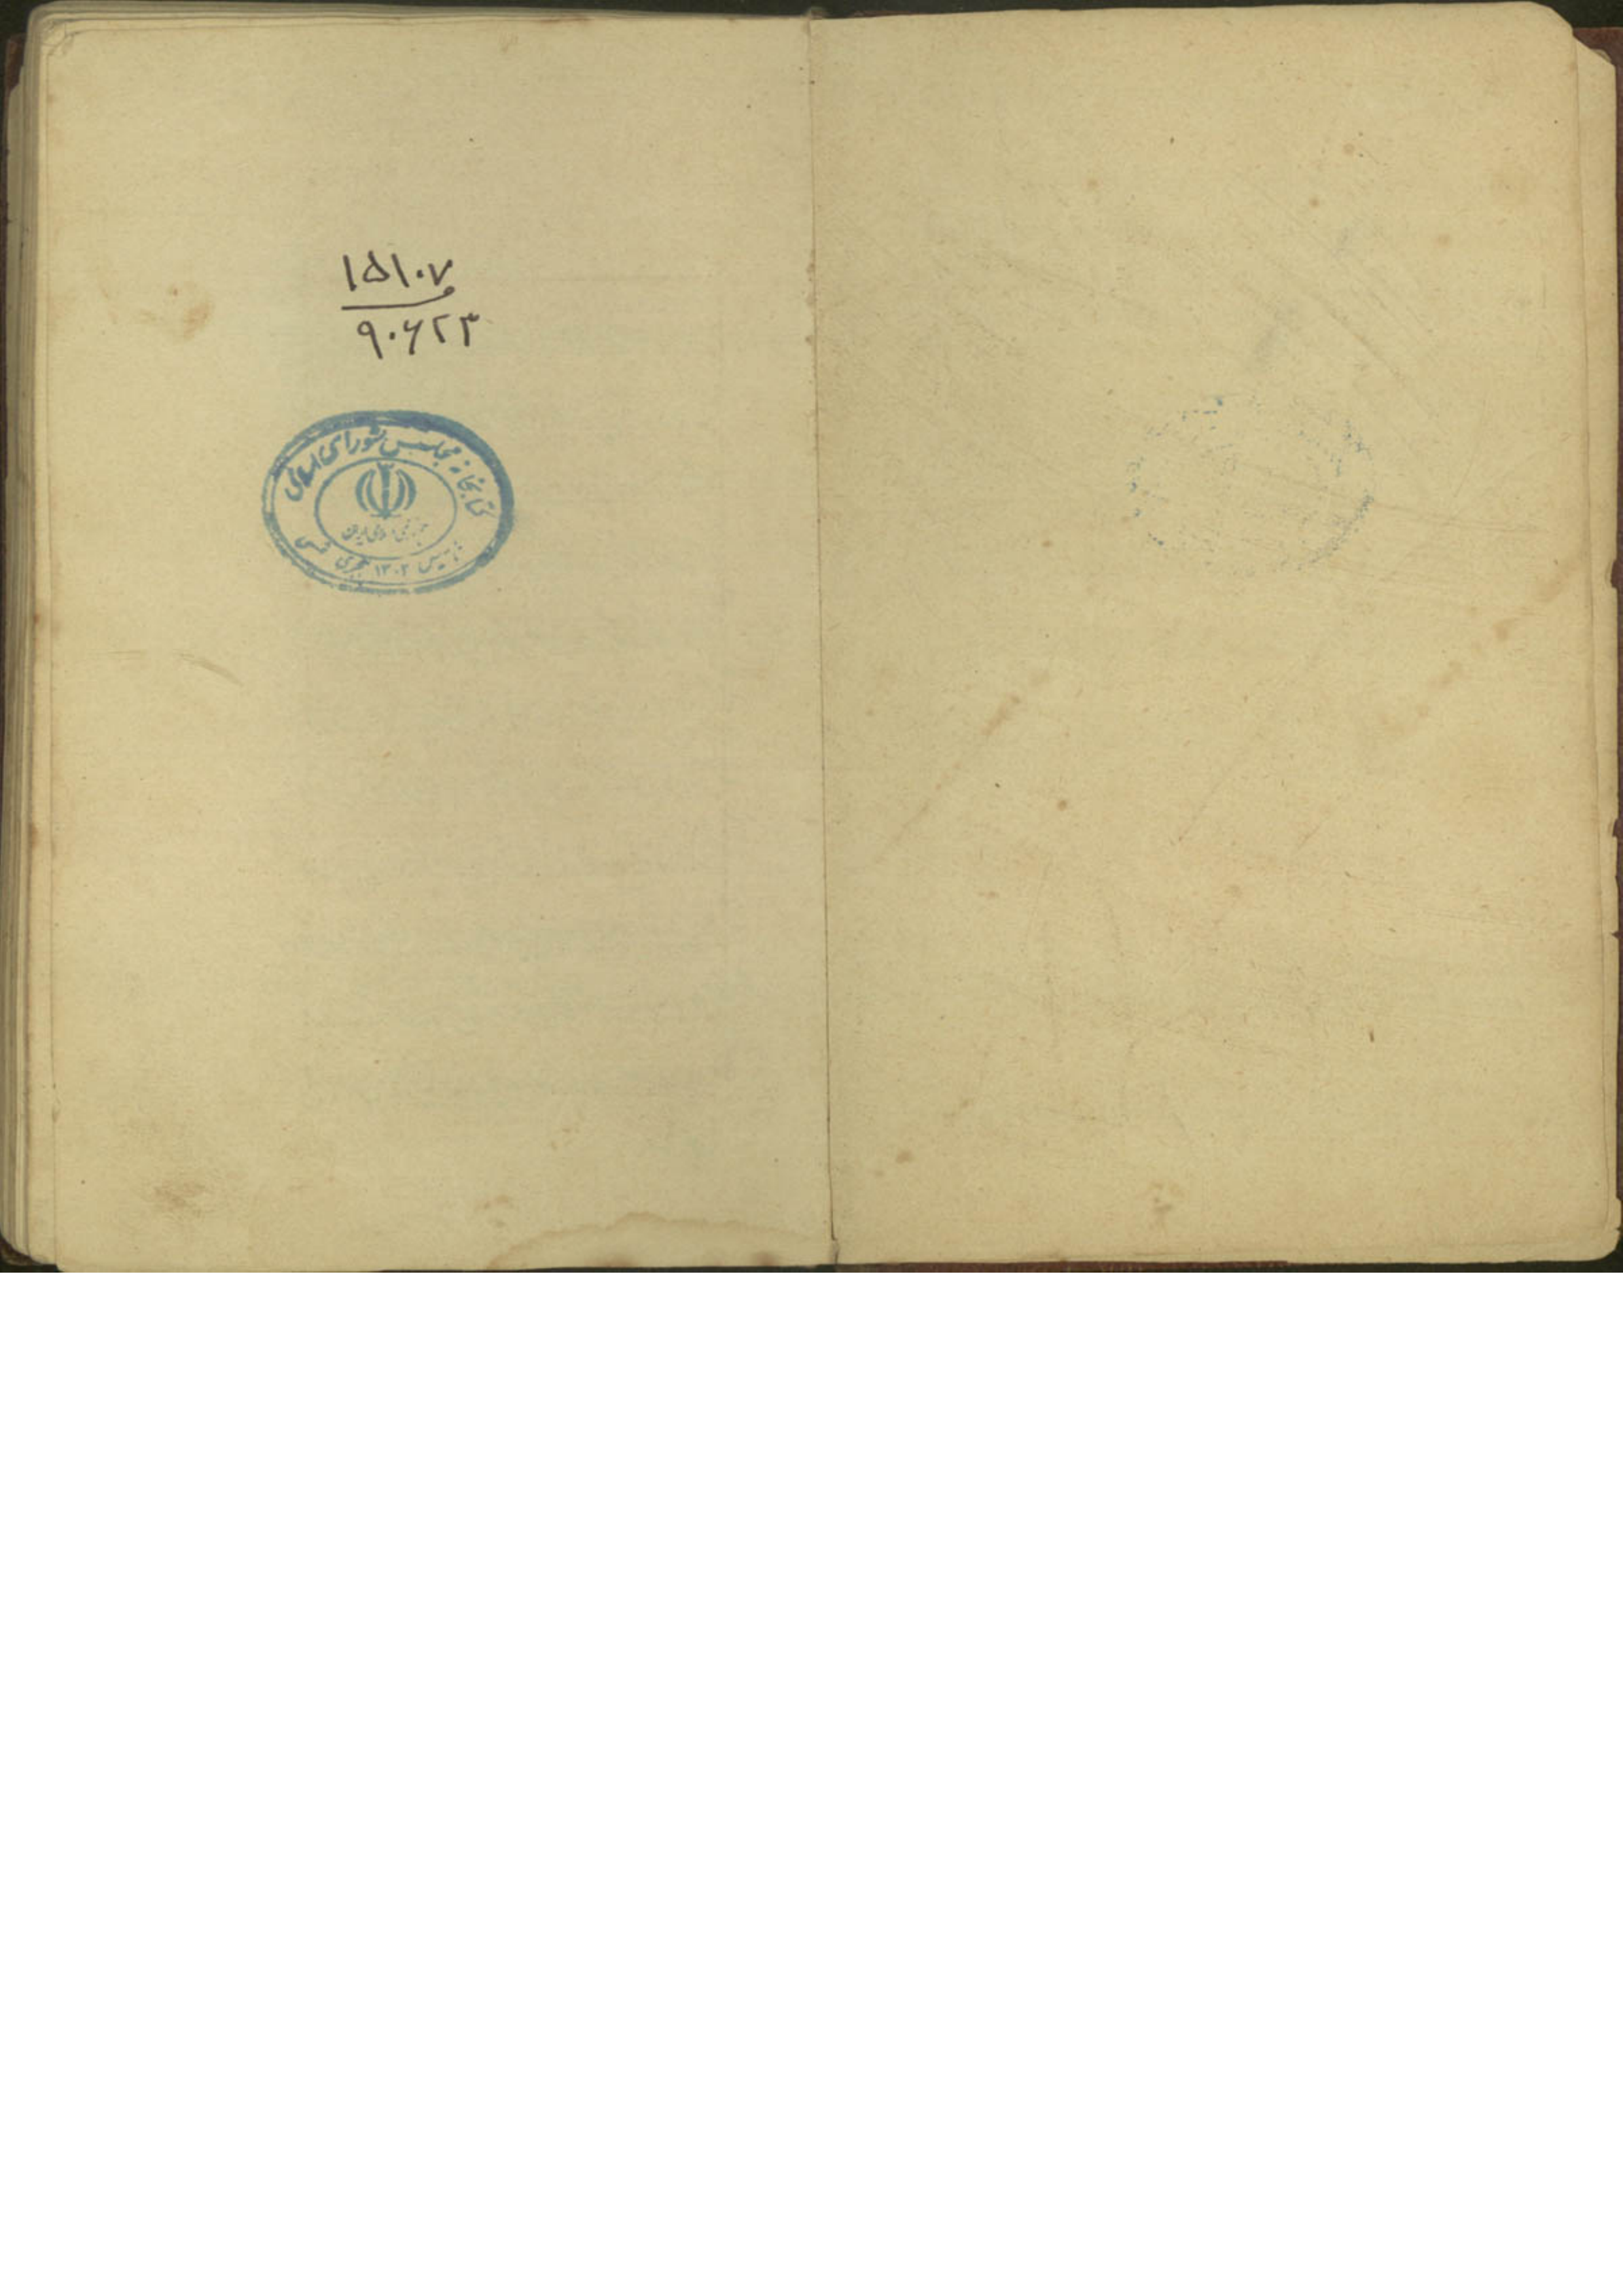 ۱۵۱۰۷
۹۰۶۲۳
کتابخانه مجلس شورای اسلامی
جمهوری اسلامی ایران
تاسیس ۱۳۰۲ هجری شمسی